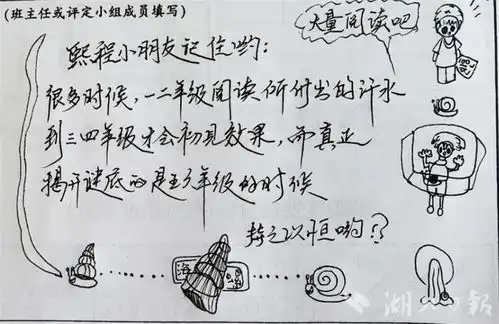 (班主任或评定小组成员填写)
大量阅读吧
熙程小朋友记住哟:
很多时候,一二年级阅读所付出的汗水
到三四年级才会初见效果,而真正
揭开谜底的是五六年级的时候
持之以恒哟!?
海
湖北日报